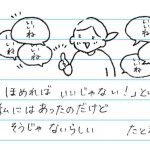 いいね
いいね
いいね
いいね
ほめれば いいじゃない！」とい
私にはあったのだけど
そうじゃ ないらしい たと